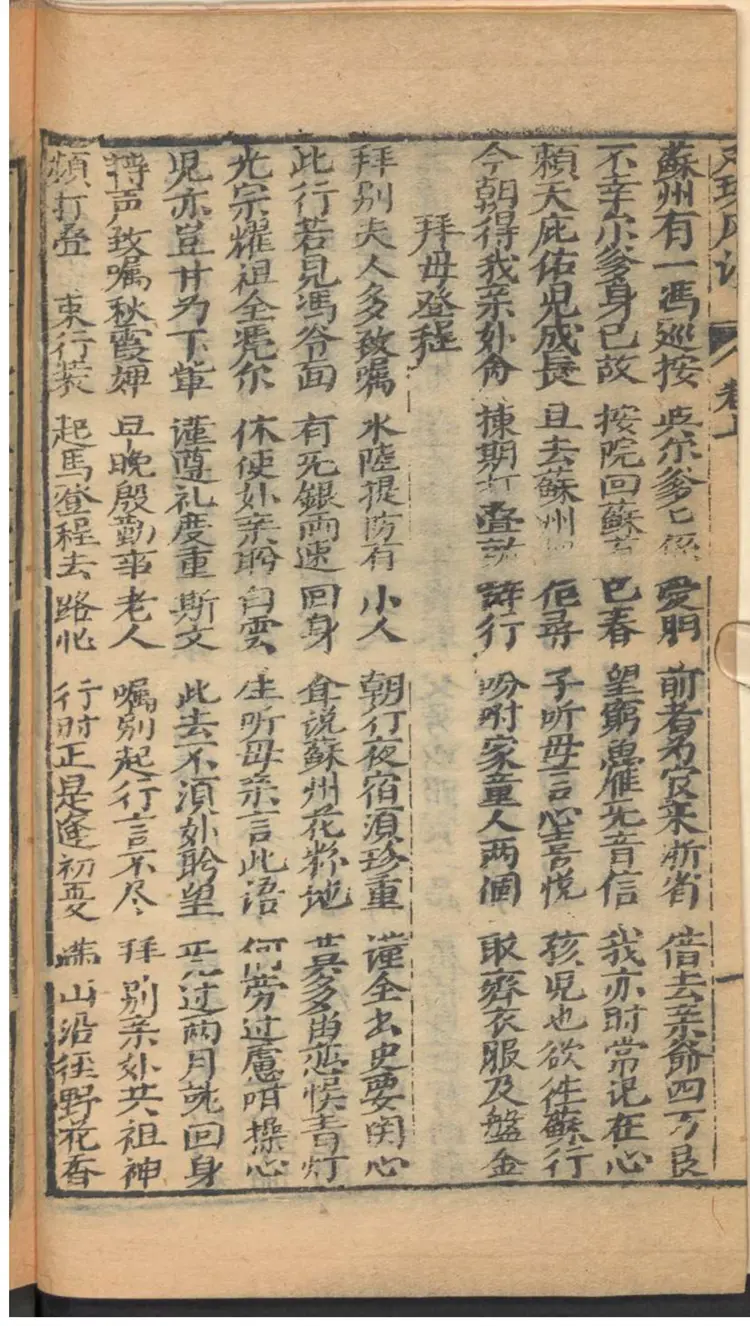 卷上
蘇州有一馮巡按 與尔爹 係愛朋 前者為官來浙省 借去亲爺四万艮
不幸尔爹身已故 按院回蘇 已春 望窮魚雁无音信 我亦时常记在心
賴天庇佑児成長 且去蘇州 佢尋 子听毋言心喜悅 孩児也欲徃蘇行
今朝得我亲外肯 揀期打叠 許行 吩咐家童人两個 取齊衣服及盤金
拜毋登程
拜别夫人多致嘱 水陸提防有小人 朝行夜宿須珍重 谨全出史要関心
此行若見馮爷面 有无銀両速回身 耳说蘇州花粉地 莫多留恋悞青灯
光宗耀祖全凴尔 休使外亲盻白雲 生听毋亲言此语 何劳过慮咁操心
児亦豈甘为下軰 谨遵礼度重斯文 此去不湏外盻望 无过两月就回身
轉声致嘱秋霞婢 早晚殷勤事老人 嘱别起行言不尽 拜别亲外共祖神
頻打叠 束行裝 起馬登程去路忙 行时正是逢初夏 满山沿徑野花香